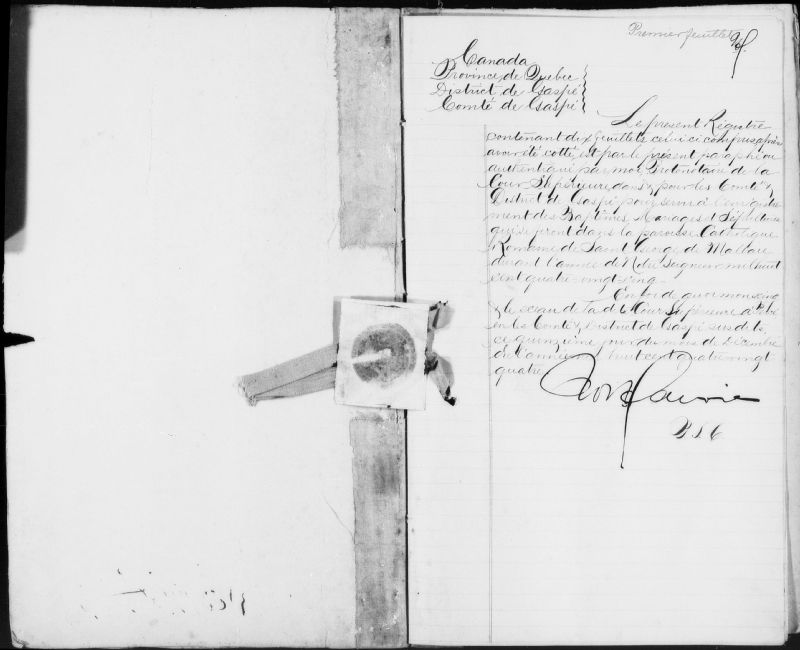 Premier feuillet
Canada
Province de Quebec
District de Gaspé
Comté de Gaspé
Le présent Régistre
contenant dix feuillets celui ci compris après
avoir été cotté est par le présent paraphé ou
authentiqué par moi, Protonotaire de la
Cour Supérieure dans & pour les Comté &
District de Gaspé pour servir à l'enrégistre
ment des Baptêmes Mariages et Sépultures
qui se feront dans la paroisse Catholique
Romaine de Saint George de Malbaie
durant l'année de Notre Seigneur mil huit
cent quatre vingt cinq
En foi de quoi mon seing
& le sceau de la dte Cour Supérieure à Percé
en les Comté & District de Gaspé susdits,
ce quinzième jour du mois de Décembre
de l'année huit cent quatre vingt
quatre